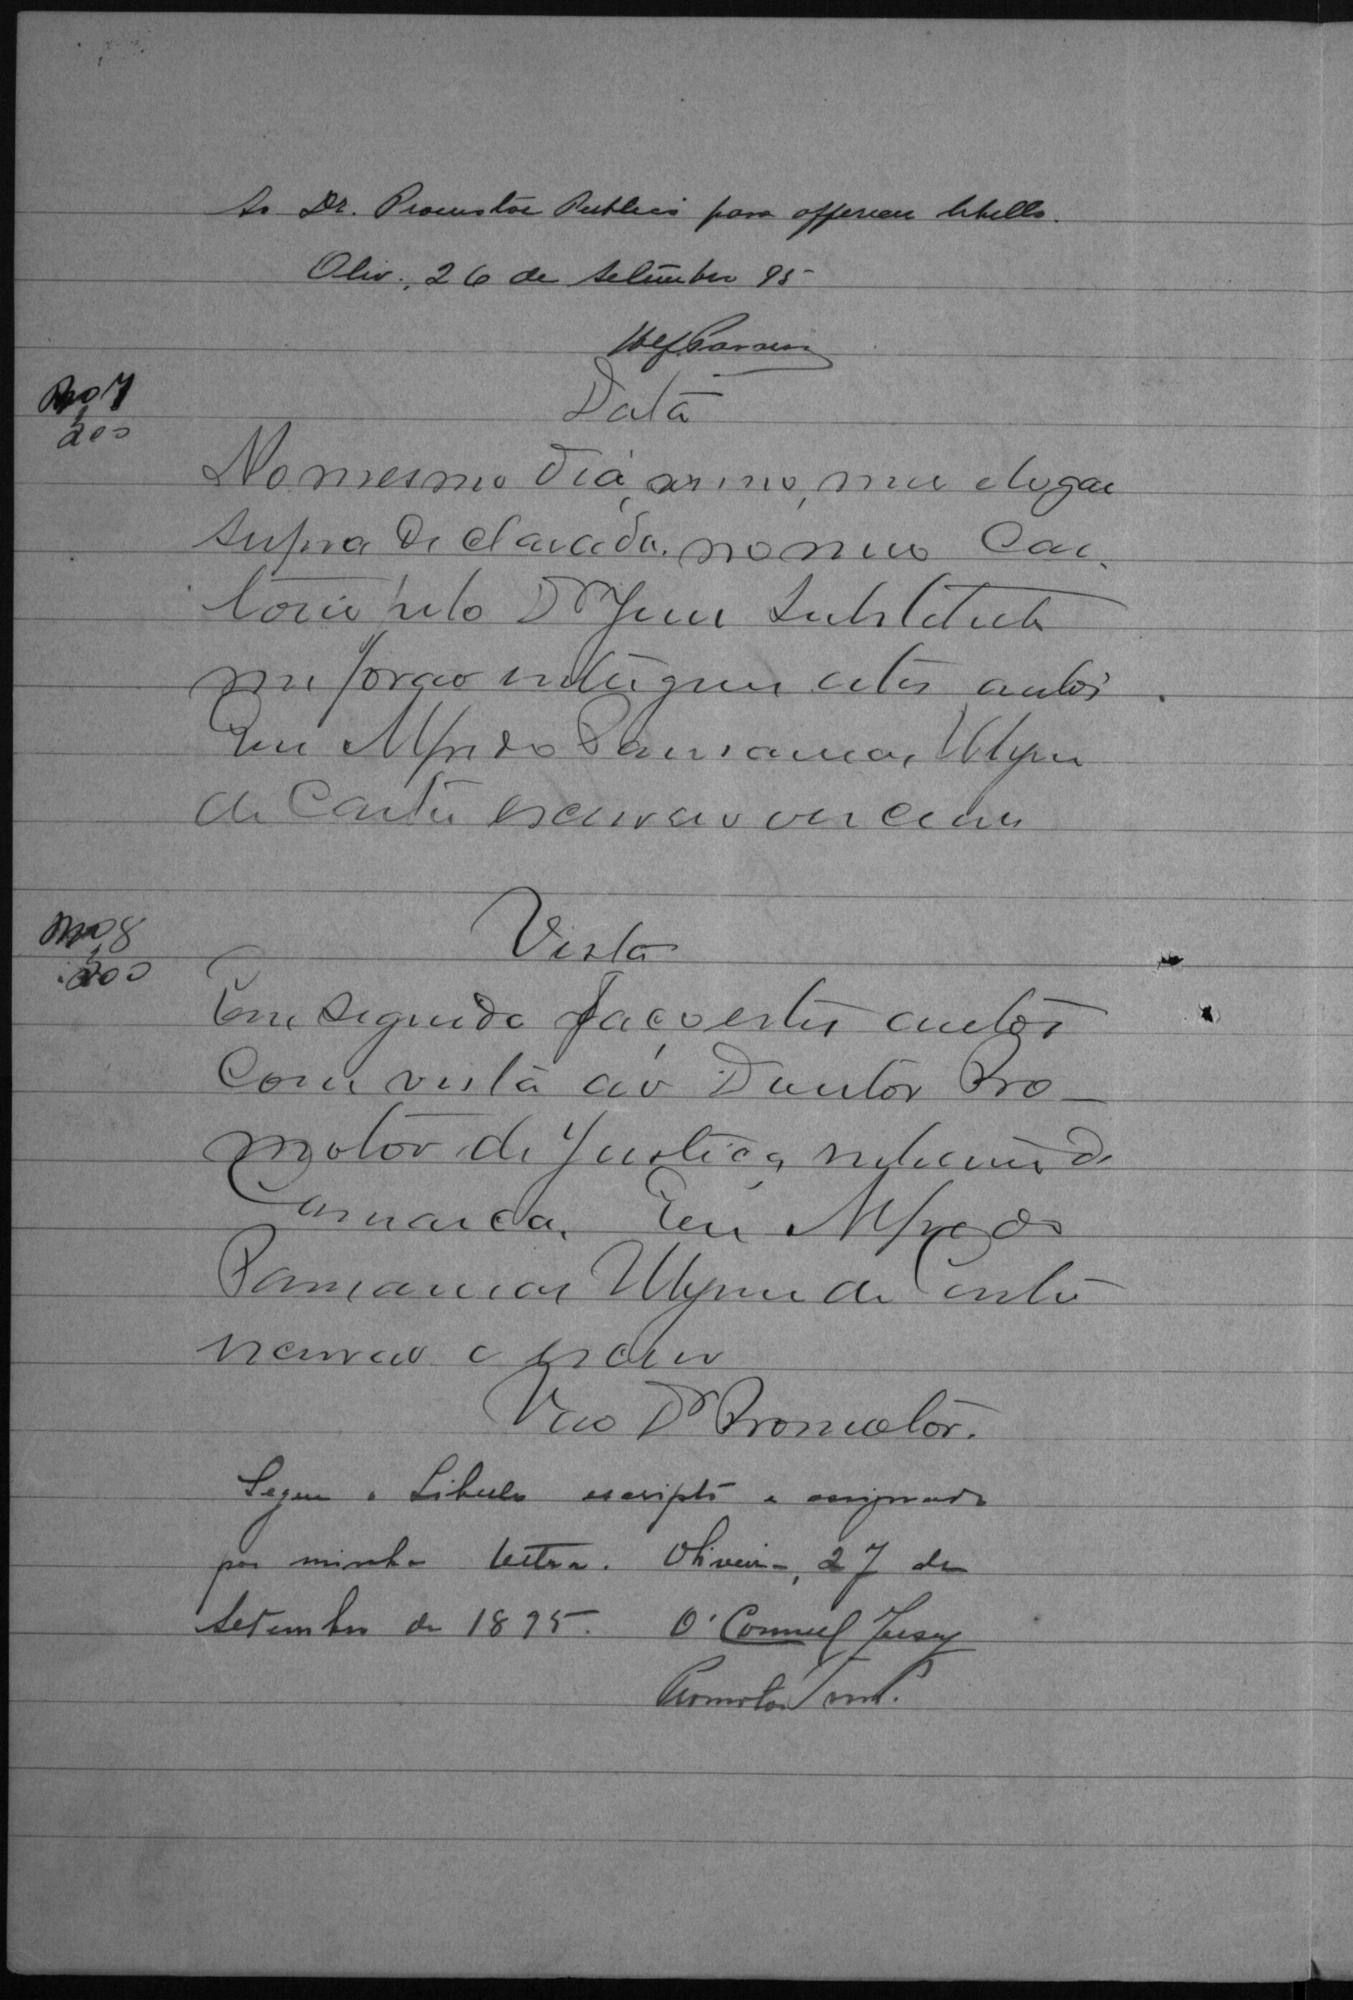 Ao Dr. Promotor Publico para offerecer libello.
Oliv., 26 de Setembro 95
Data
No 7
200
No mesmo dia, anno, mez e lugar
supra declarado, no meu Car-
torio pelo Dr Juiz Substituto
me forão entregues estes autos.
Eu Alfredo
de Castro escrivão o escrevi
Vista
No 8
200
Em seguida faço estes autos
com vista ao Doutor Pro-
motor de Justiça, interino da
Comarca. Eu Alfredo
de Castro
escrivão o escrevi
V ao Dr Promotor.
Segue o Libello escripto e assignado
por minha lettra. Oliveira, 27 de
Setembro de 1895. O'Connell Jersey
Promotor int.